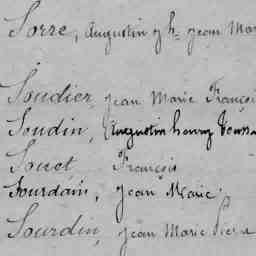 Sorre, Augustin y h. Jean Mar
Soudier, Jean Marie Françoi
Soudin, Augustin henry Toussa
Souet François
Sourdain, Jean Marie
Sourdin, Jean Marie Pierre